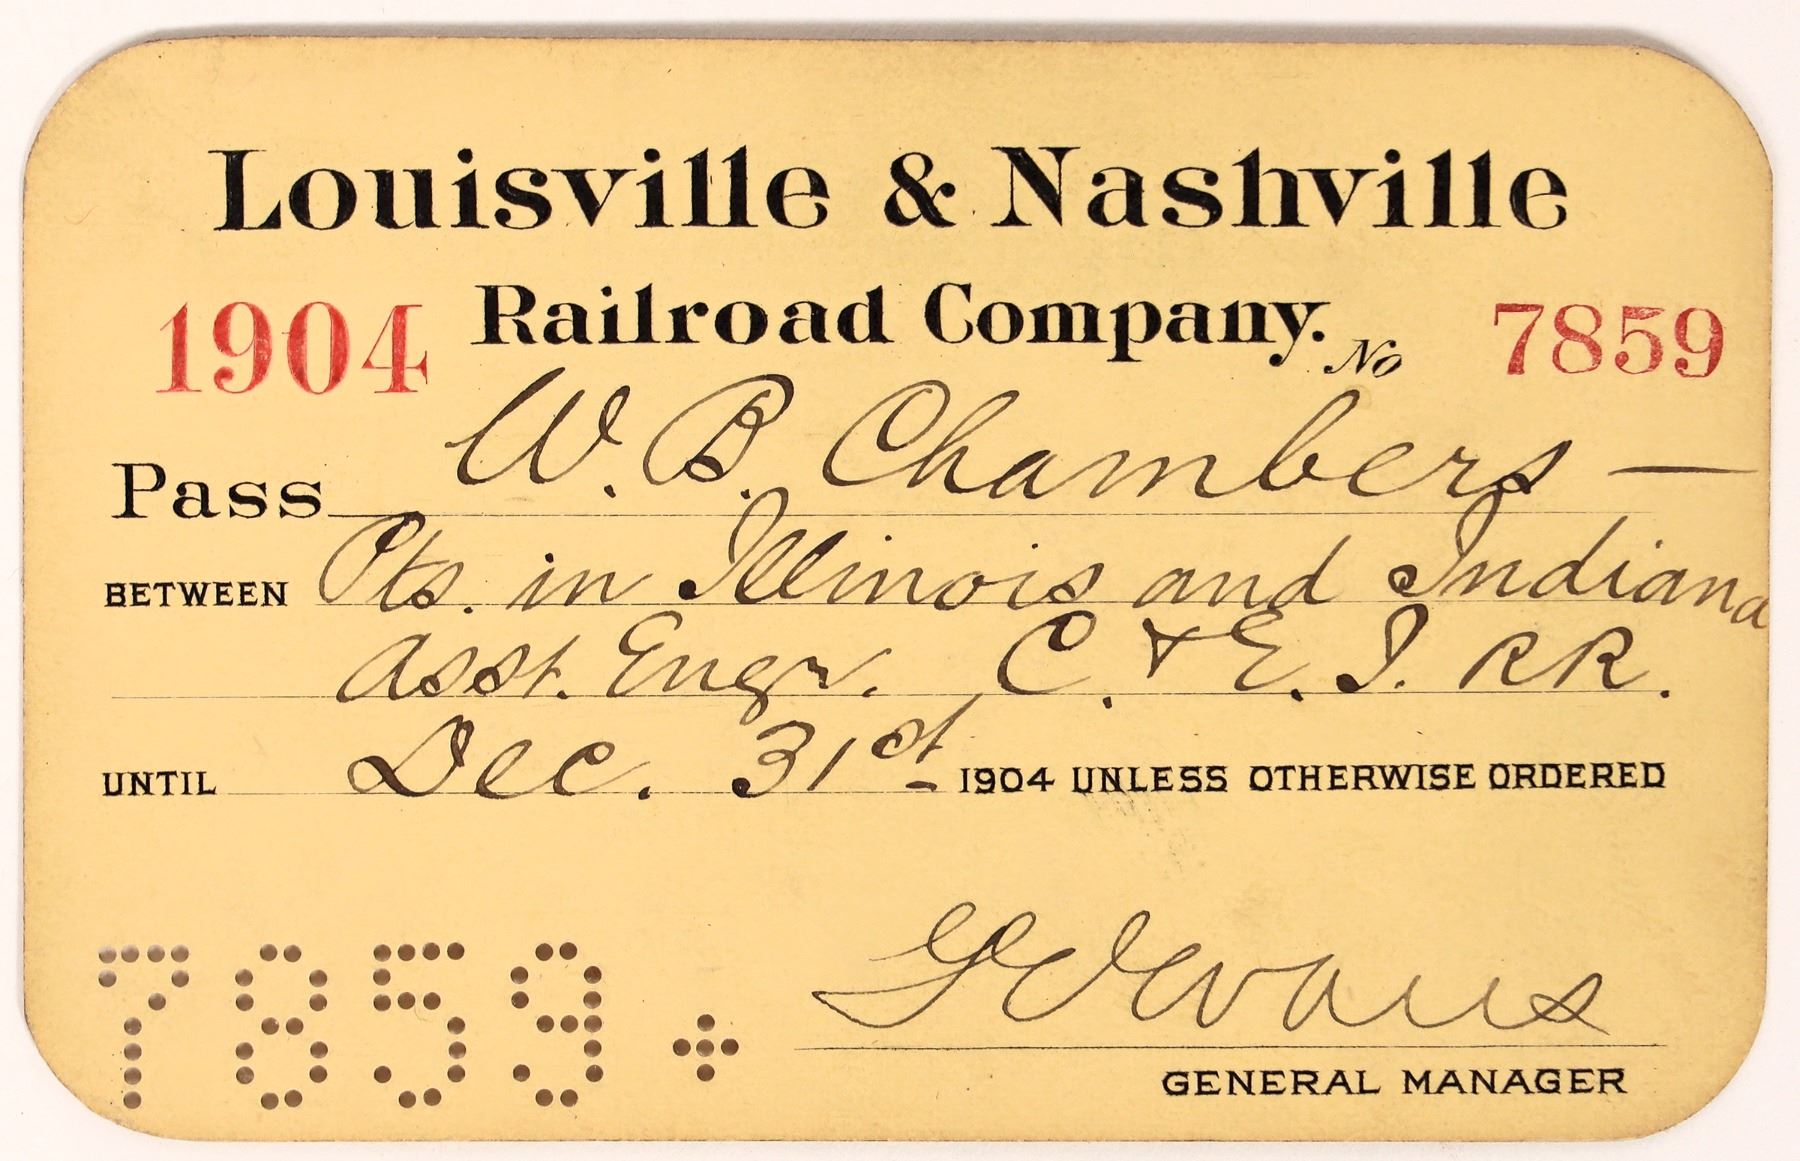 Louisville & Nashville
1904 Railroad Company. No 7859
Pass W. B. Chambers —
BETWEEN Pts. in Illinois and Indiana
Asst. Engr. C. & E. I. RR.
UNTIL Dec. 31st 1904 UNLESS OTHERWISE ORDERED
G E Evans
GENERAL MANAGER
7859 +